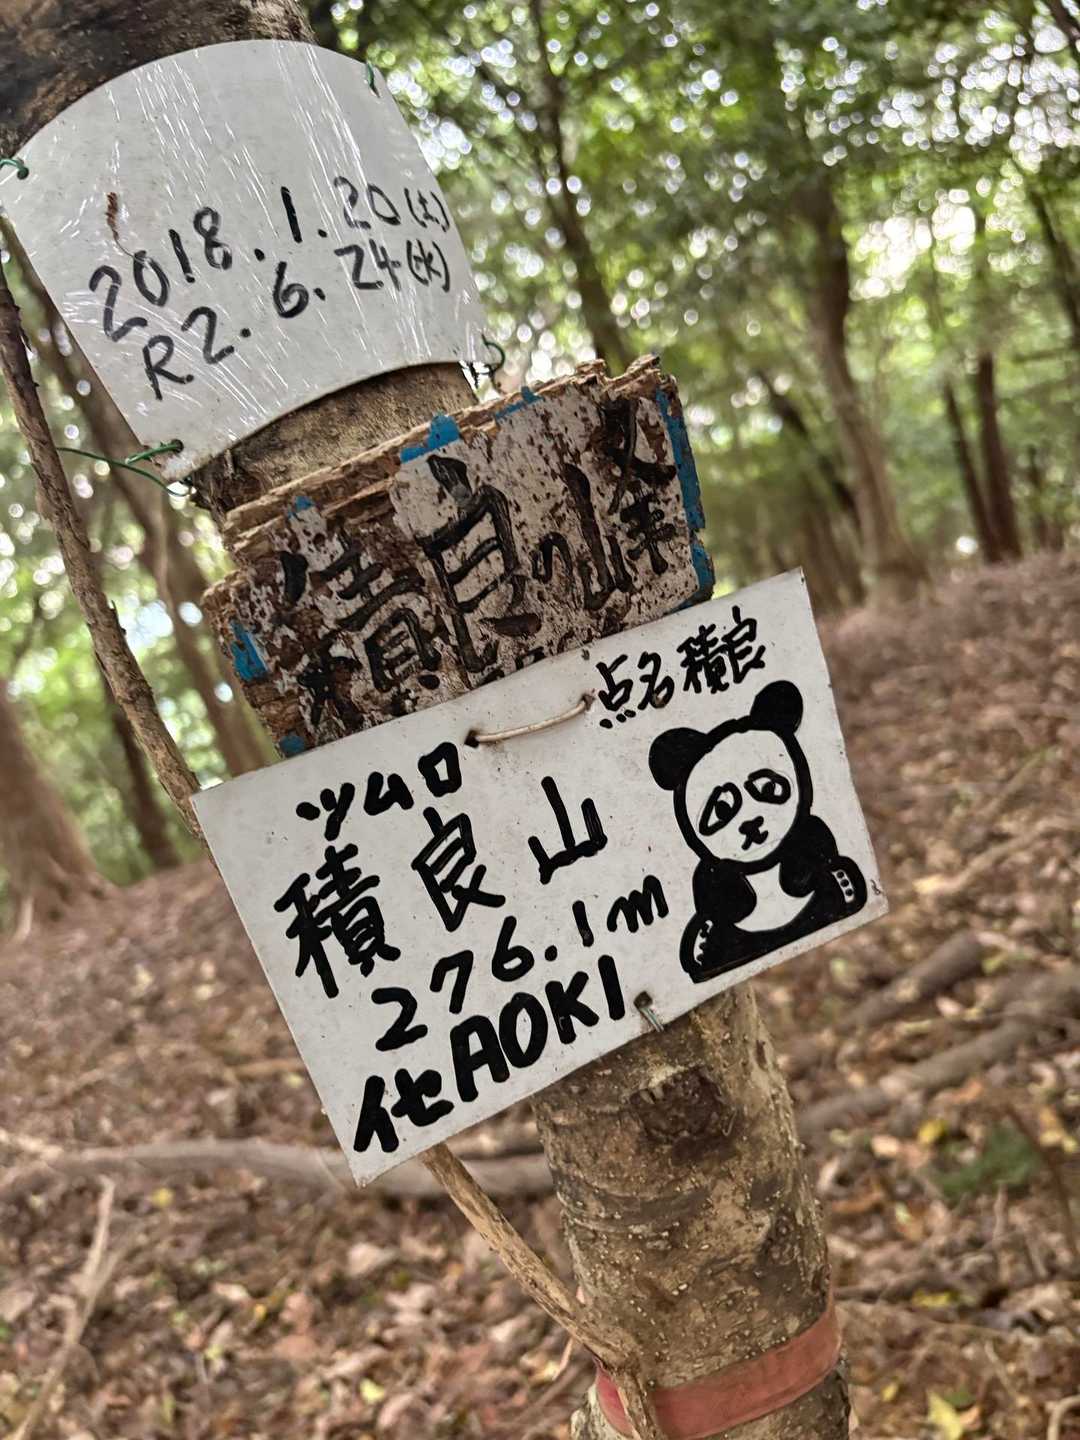 2018.1.20(土)
R2.6.24(水)
積良の峰
点名 積良
ツムロ
積良山
276.1m
他AOKI